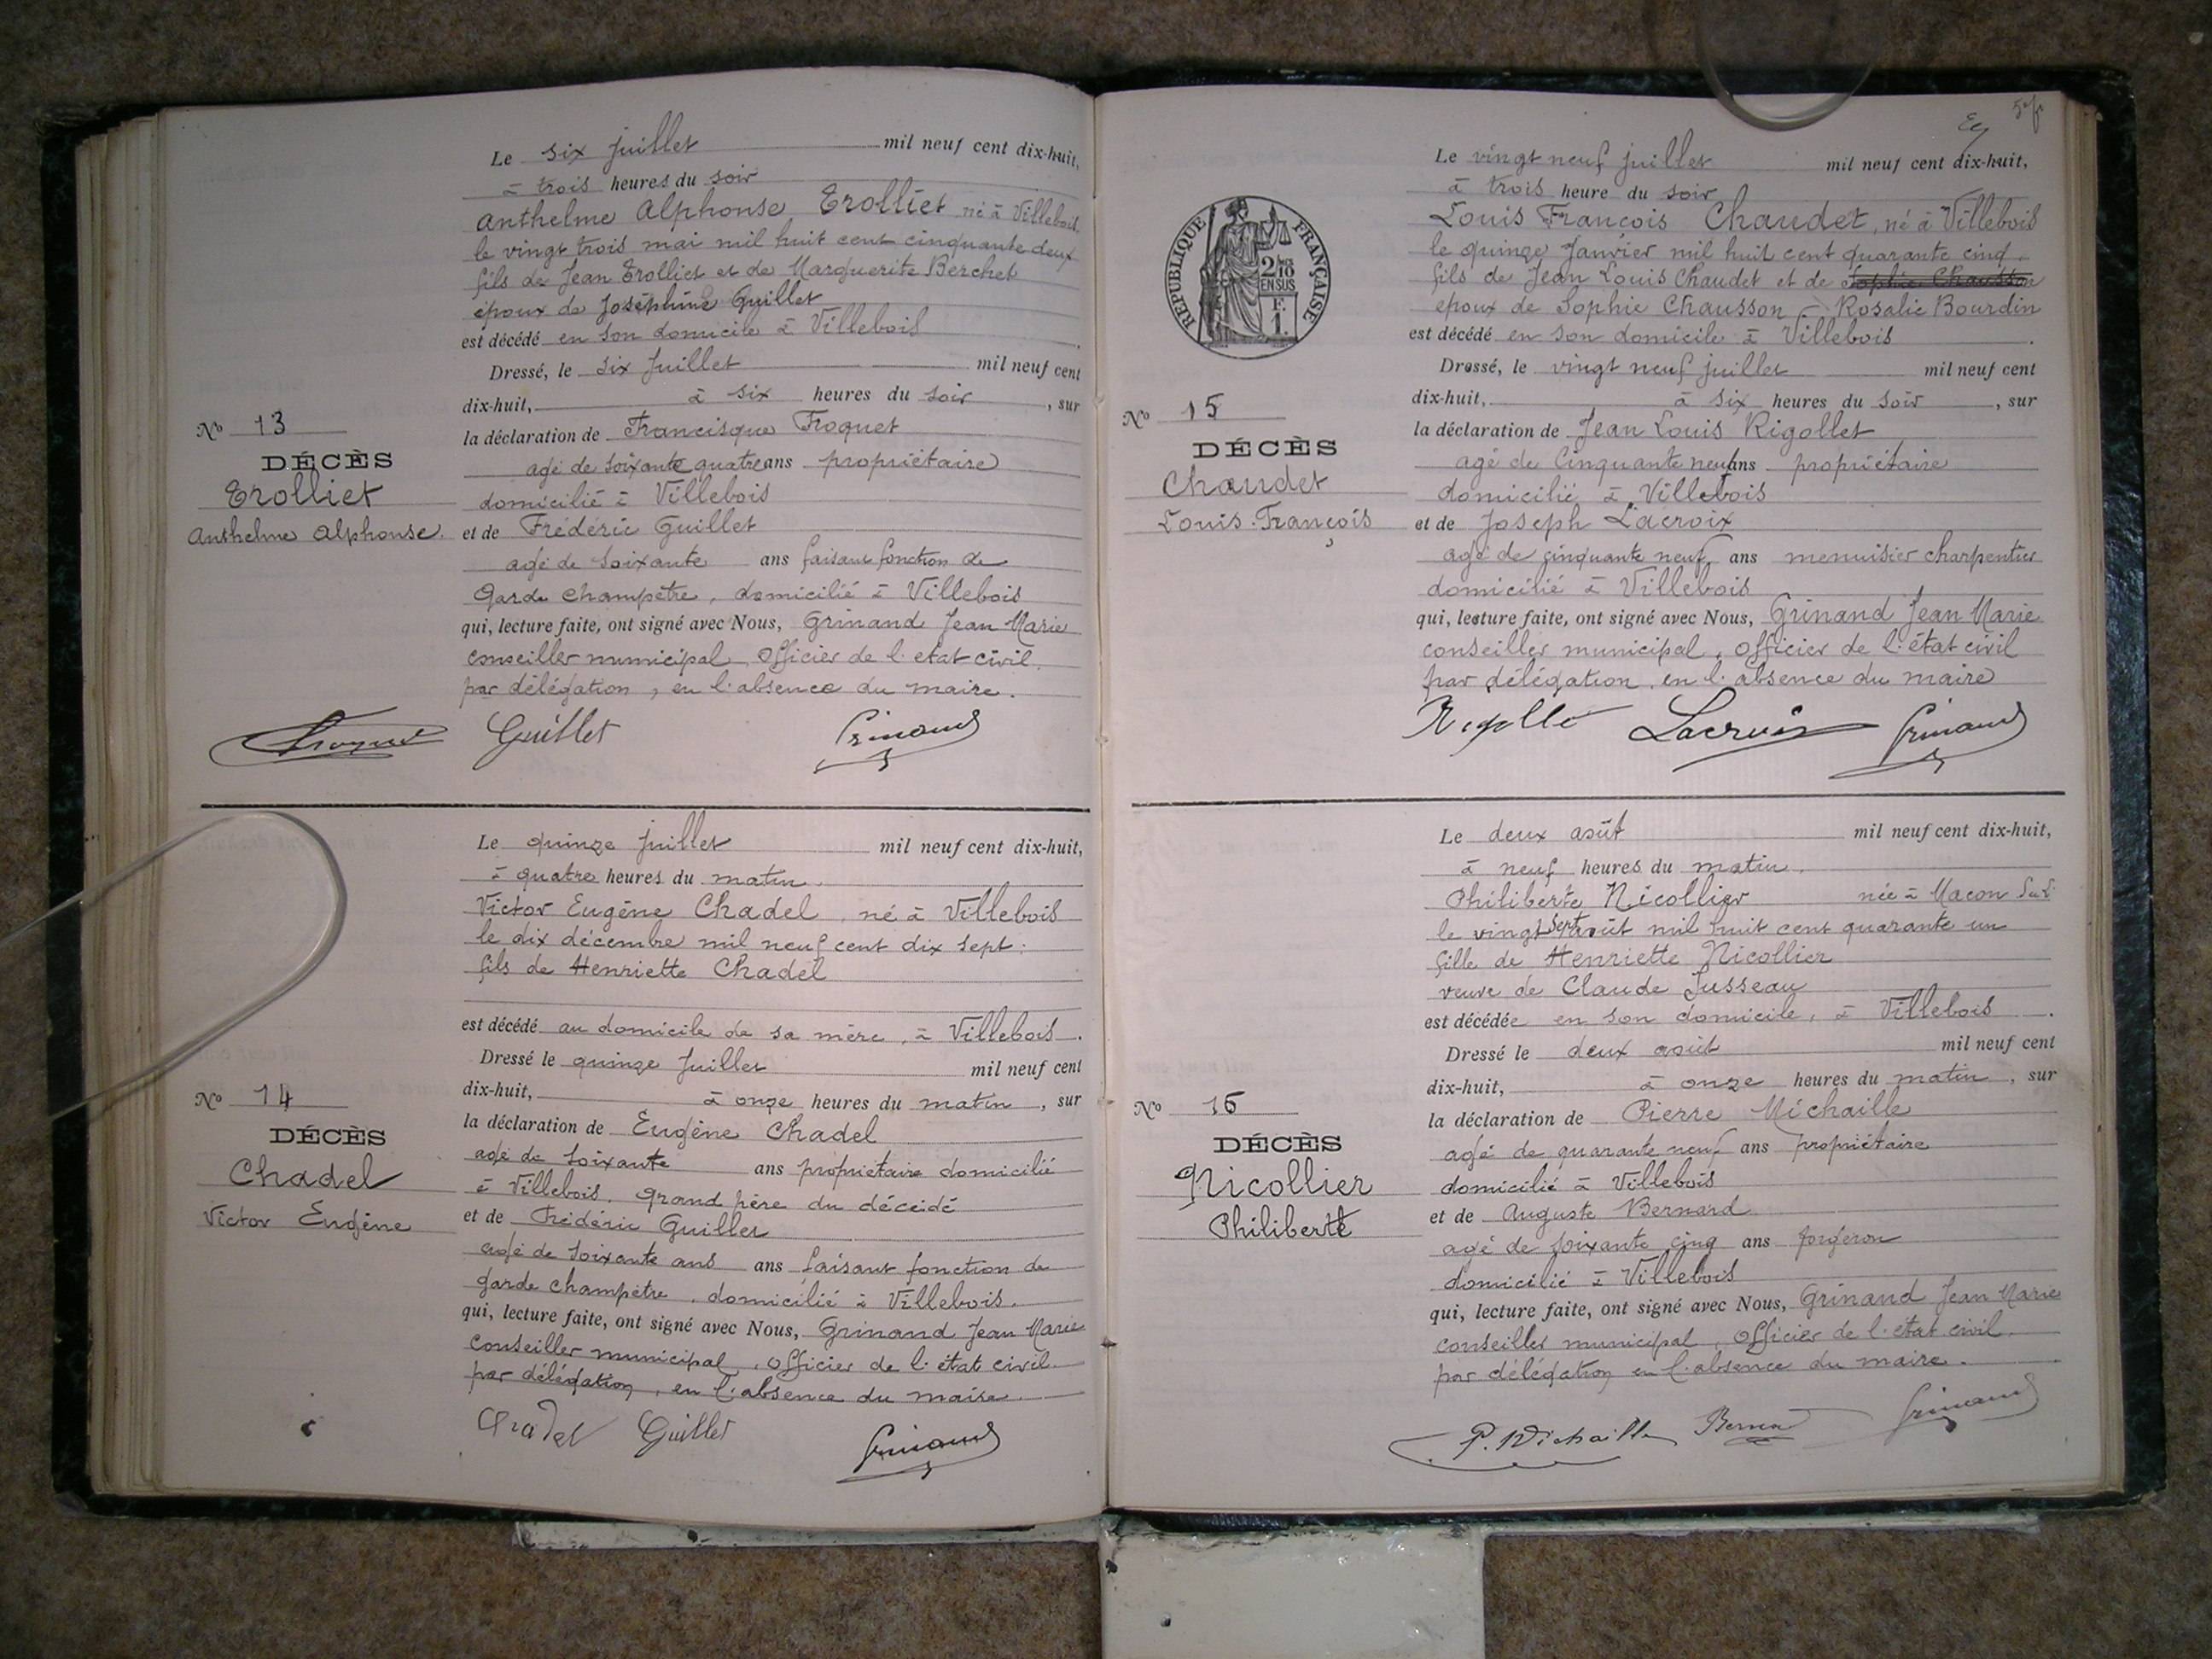 Le six juillet mil neuf cent dix-huit,
à trois heures du soir
Anthelme Alphonse Trolliet né à Villebois
le vingt trois mai mil huit cent cinquante deux
fils de Jean Trolliet et de Marguerite Berchet
époux de Joséphine Guillet
est décédé en son domicile à Villebois
Dressé, le six Juillet mil neuf cent
dix-huit, à six heures du soir, sur
la déclaration de Francisque Froquet
agé de soixante quatre ans propriétaire
domicilié à Villebois
et de Frédéric Guillet
agé de soixante ans faisant fonction de
Garde champêtre, domicilié à Villebois
qui, lecture faite, ont signé avec Nous, Grinand Jean Marie
conseiller municipal, officier de l'état civil,
par délégation, en l'absence du maire.
Nº 13
DÉCÈS
Trolliet
Anthelme Alphonse
Froquet Guillet Grinand
Le quinze juillet mil neuf cent dix-huit,
à quatre heures du matin.
Victor Eugène Chadel, né à Villebois
le dix décembre mil neuf cent dix sept:
fils de Henriette Chadel
est décédé au domicile de sa mère, à Villebois.
Dressé le quinze Juillet mil neuf cent
dix-huit, à onze heures du matin, sur
la déclaration de Eugène Chadel
agé de soixante ans propriétaire domicilié
à Villebois. grand père du décédé
et de Frédéric Guillet
agé de soixante ans ans faisant fonction de
garde champêtre, domicilié à Villebois.
qui, lecture faite, ont signé avec Nous, Grinand Jean Marie
conseiller municipal, officier de l'état civil
par délégation, en l'absence du maire.
Nº 14
DÉCÈS
Chadel
Victor Eugène
Chadel Guillet Grinand
Le vingt neuf juillet mil neuf cent dix-huit,
à trois heure du soir
Louis François Chaudet, né à Villebois
le quinze Janvier mil huit cent quarante cinq.
fils de Jean Louis Chaudet et de Sophie Chausson
époux de Sophie Chausson - Rosalie Bourdin
est décédé en son domicile à Villebois.
Dressé, le vingt neuf juillet mil neuf cent
dix-huit, à six heures du soir, sur
la déclaration de Jean Louis Rigollet
agé de cinquante neuf ans propriétaire
domicilié à Villebois
et de Joseph Lacroix
agé de cinquante neuf ans menuisier charpentier
domicilié à Villebois
qui, lecture faite, ont signé avec Nous, Grinand Jean Marie
conseiller municipal, officier de l'état civil
par délégation, en l'absence du maire
RÉPUBLIQUE FRANÇAISE
2/10 EN SUS
F. 1.
Nº 15
DÉCÈS
Chaudet
Louis-François
Rigollet Lacroix Grinand
Le deux août mil neuf cent dix-huit,
à neuf heures du matin.
Philiberte Nicollier née à Macon
le vingt sept août mil huit cent quarante un
fille de Henriette Nicollier
veuve de Claude Jusseau
est décédée en son domicile, à Villebois.
Dressé le deux août mil neuf cent
dix-huit, à onze heures du matin, sur
la déclaration de Pierre Michaille
agé de quarante neuf ans propriétaire
domicilié à Villebois
et de Auguste Bernard
agé de soixante cinq ans forgeron
domicilié à Villebois
qui, lecture faite, ont signé avec Nous, Grinand Jean Marie
conseiller municipal, officier de l'état civil.
par délégation en l'absence du maire.
Nº 16
DÉCÈS
Nicollier
Philiberte
P. Michaille Grinand